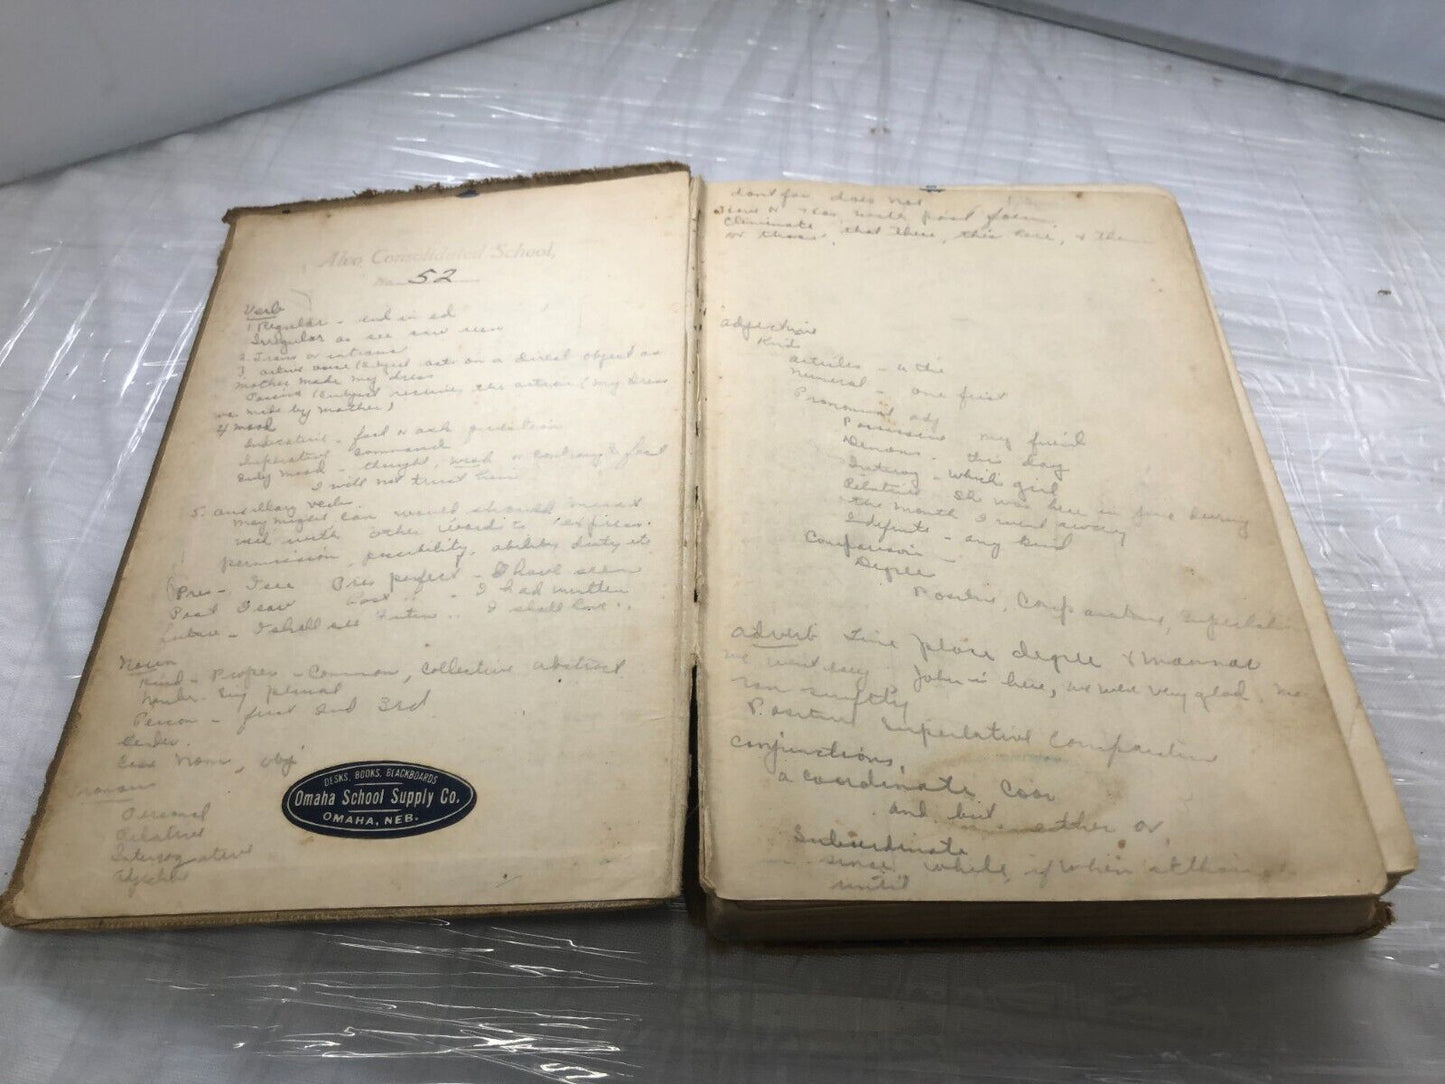 Alvo Consolidated School,
No. 52
Verb
1 Regular - end in ed
Irregular as see saw seen
2 Trans or intrans
3 active voice (Subject acts on a direct object as
mother made my dress
Passive (Subject receives the action (my dress
was made by mother)
4 mood
Indicative - fact or ask question
Imperative command
Subj Mood - thought, wish or contrary to fact
I will not trust him
5. auxillary verbs
may might can would should must
used with other words to express
permission, possibility, ability, duty etc
Pres - I see Pres perfect - I have seen
Past I saw Past " - I had written
Future - I shall see Future " I shall have "
Noun
Kind - Proper - Common, collective abstract
Number Sing plural
Person - first 2nd 3rd
Gender.
Case Nom, obj
Pronouns
Personal
Relative
Interrogative
Adjective
DESKS, BOOKS, BLACKBOARDS
Omaha School Supply Co.
OMAHA, NEB.
dont for does not
with past form
Eliminate that there, this here, + them
or those,
adjective
Kinds
articles - a the
Numeral - one first
Pronominal adj
Possessive my friend
Demons - this day
Interog - which girl
Relative She was here in June during
the month I went away
Indefinite - any kind
Comparison
Degree
Positive, Comparative, Superlative
adverb time place degree + mannar
We went away John is here, we were very glad. He
ran swiftly
Positive Superlative Comparative
Conjunctions,
a coordinate Coor
and but either or
Subordinate
since while, if when
until